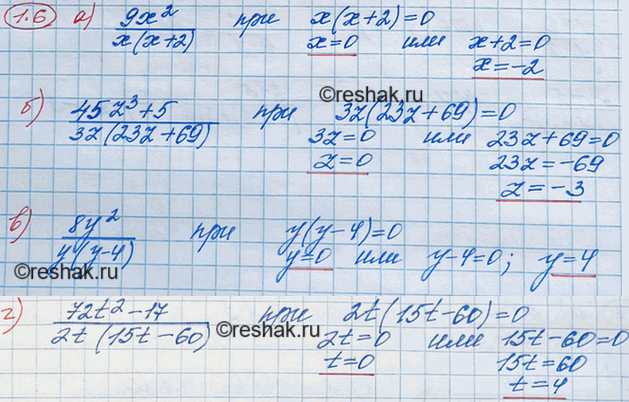 1.6 а) 9x² / x(x+2) при x(x+2)=0
x=0 или x+2=0
x=-2
©reshak.ru
б) 45z³+5 / 3z(23z+69) при 3z(23z+69)=0
3z=0 или 23z+69=0
z=0 23z=-69
z=-3
в) 8y² / y(y-4) при y(y-4)=0
©reshak.ru y=0 или y-4=0; y=4
г) 72t²-17 / 2t(15t-60) при 2t(15t-60)=0
©reshak.ru 2t=0 или 15t-60=0
t=0 15t=60
t=4